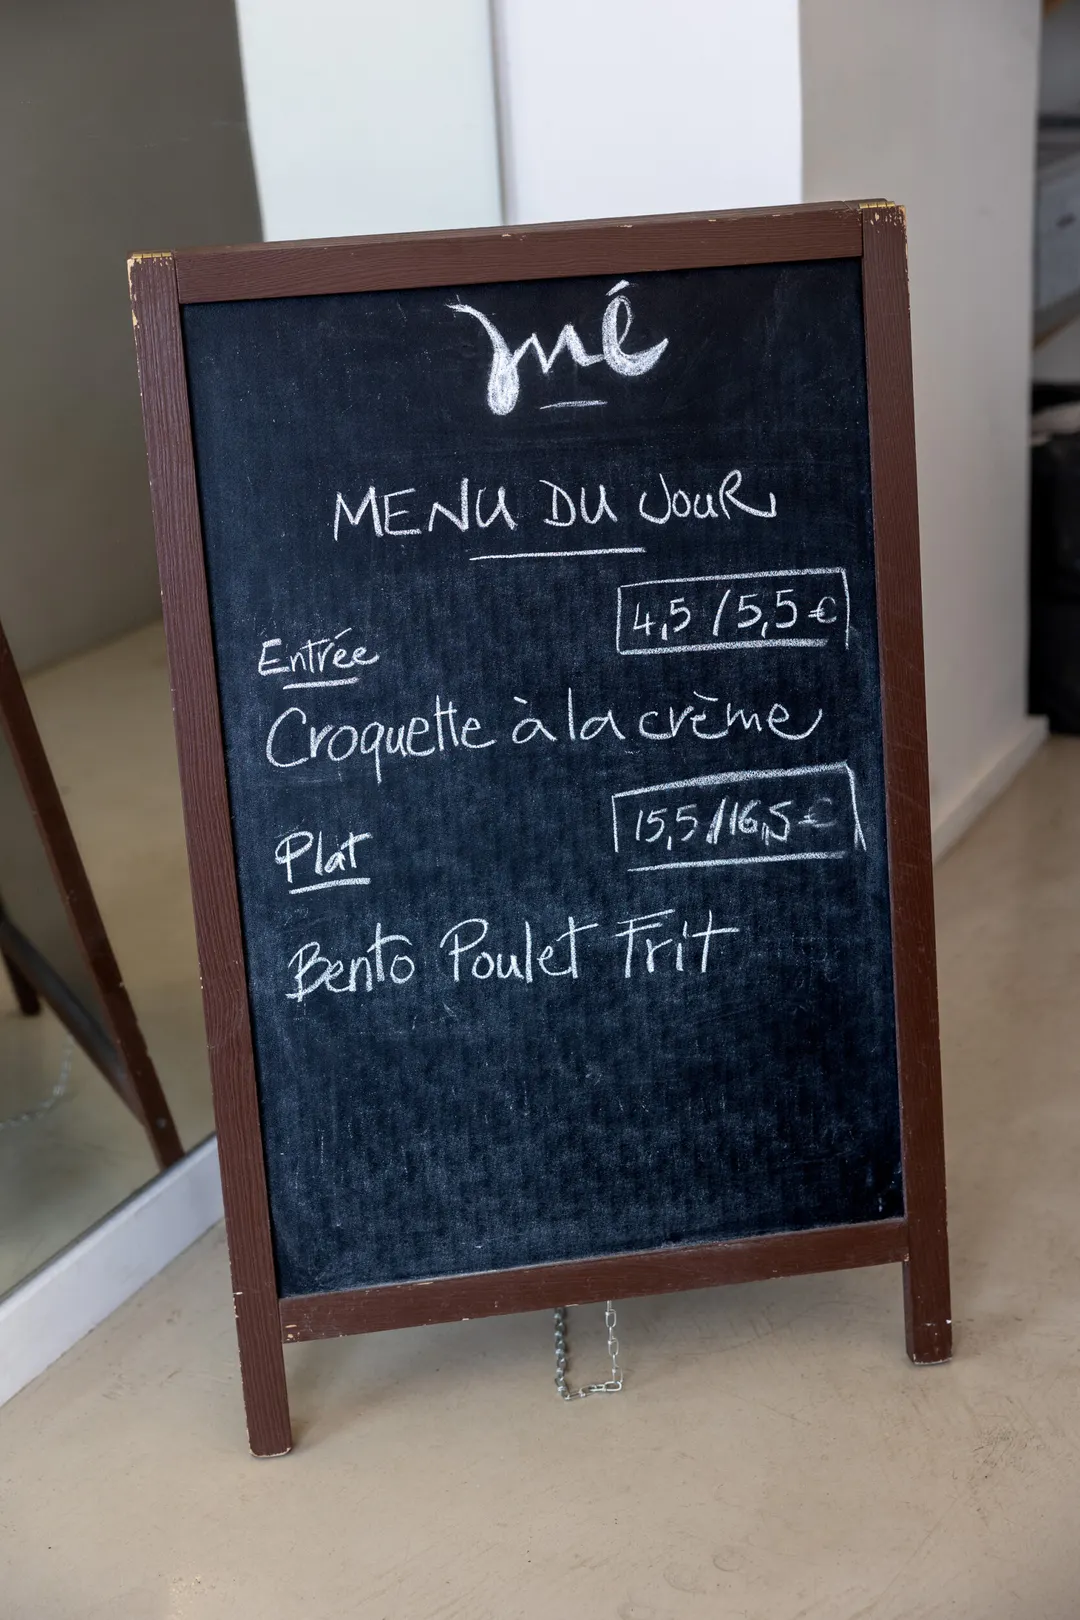 MENU DU JOUR
4,5 / 5,5 €
Entrée
Croquette à la crème
15,5 / 16,5 €
Plat
Bento Poulet Frit